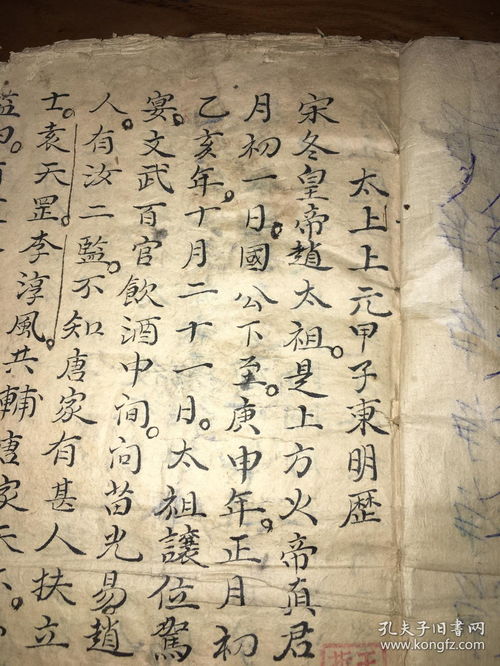 太上上元甲子東明歷
宋冬皇帝趙太祖。是上方火帝真君
月初一日。國公下至。庚申年。正月初
乙亥年。十月二十一日。太祖讓位駕
宴。文武百官飲酒中间。问苗光易。趙
人。有汝二監。不知唐家有甚人扶立
士。袁天罡。李淳風。共輔唐家天
孔夫子旧书网
www.kongfz.com